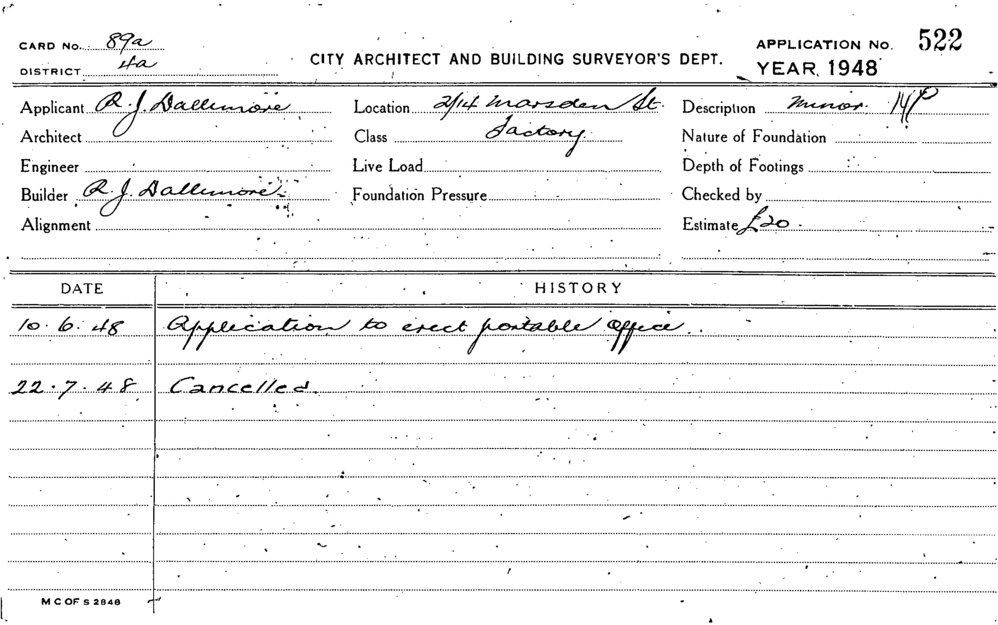 CARD No. 89a
DISTRICT 4a
CITY ARCHITECT AND BUILDING SURVEYOR'S DEPT.
APPLICATION No. 522
YEAR, 1948
Applicant R. J. Dallimore Location 2/14 Marsden St. Description Minor.
Architect Class Factory. Nature of Foundation
Engineer Live Load Depth of Footings
Builder R. J. Dallimore Foundation Pressure Checked by
Alignment Estimate £20.
DATE HISTORY
10.6.48 Application to erect portable office.
22.7.48 Cancelled.
M C OF S 2848